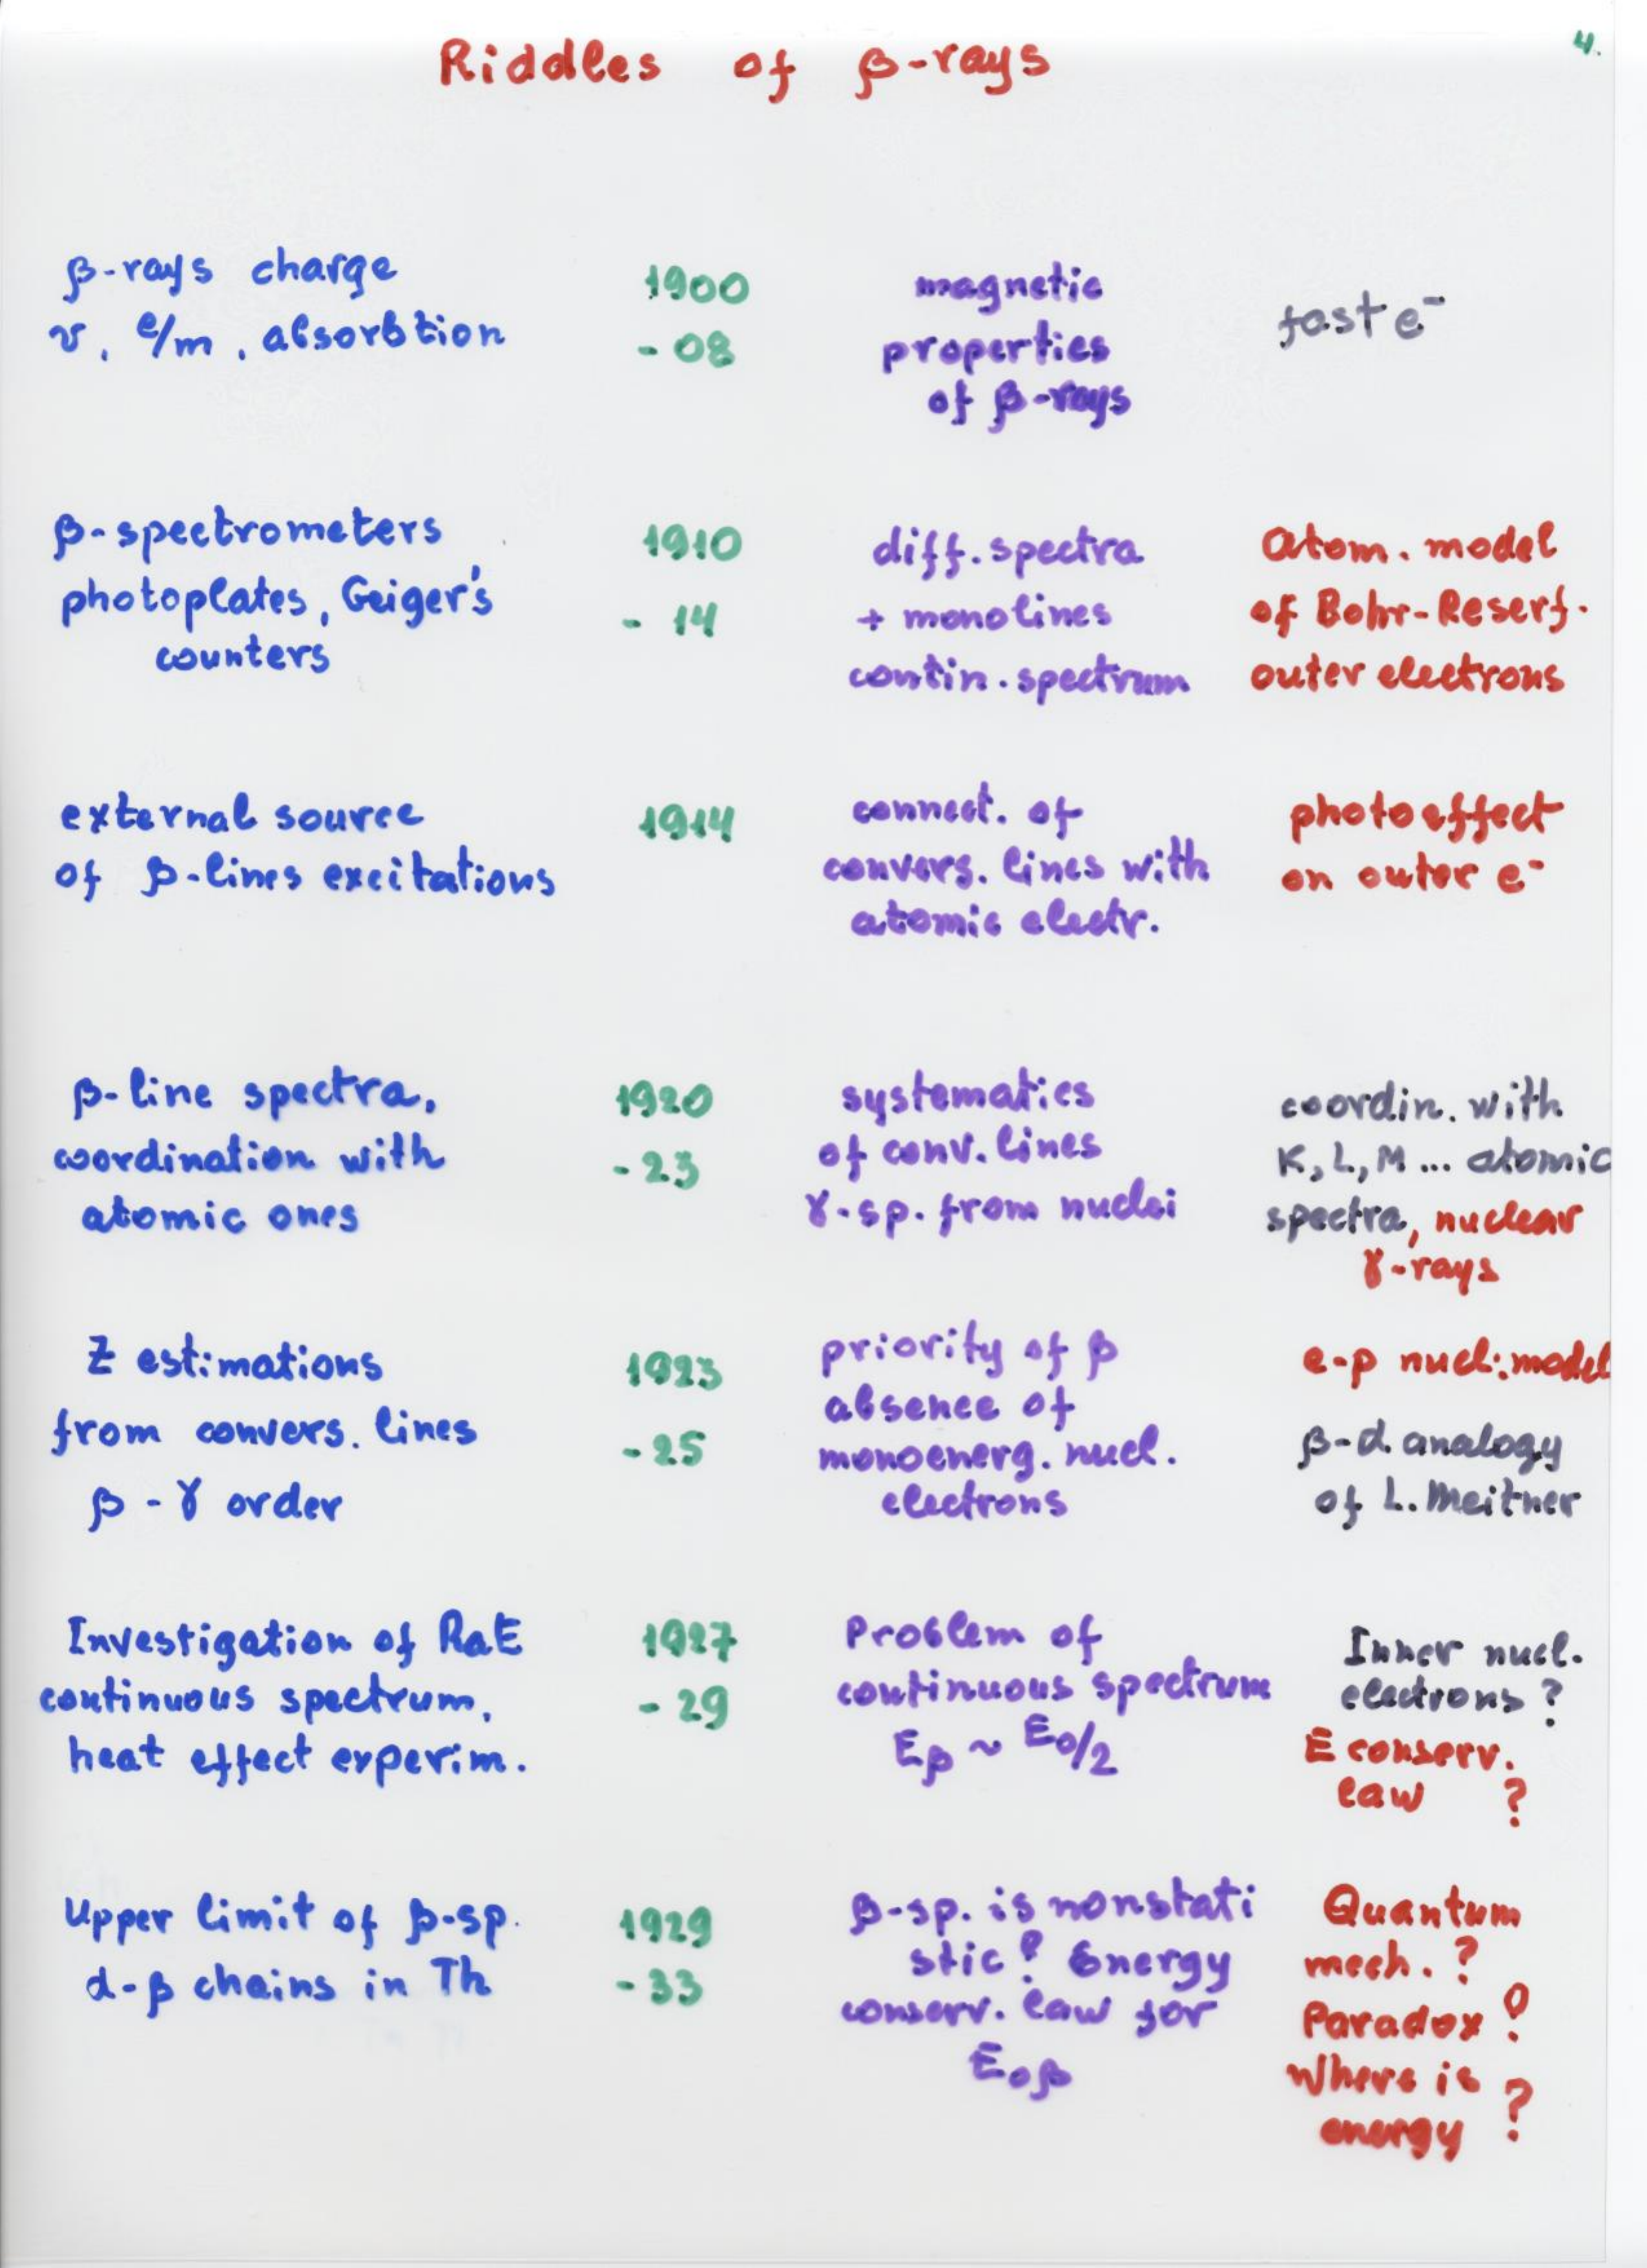 Riddles of β-rays
4.
β-rays charge
v, e/m, absorbtion
1900
- 08
magnetic
properties
of β-rays
fast e⁻
β-spectrometers
photoplates, Geiger's
counters
1910
- 14
diff. spectra
+ monolines
contin. spectrum
Atom. model
of Bohr-Reserf.
outer electrons
external source
of β-lines excitations
1914
connect. of
convers. lines with
atomic electr.
photoeffect
on outer e⁻
β-line spectra,
coordination with
atomic ones
1920
- 23
systematics
of conv. lines
γ-sp. from nuclei
coordin. with
K, L, M ... atomic
spectra, nuclear
γ-rays
Z estimations
from convers. lines
β - γ order
1923
- 25
priority of β
absence of
monoenerg. nucl.
electrons
e-p nucl. model
β-α analogy
of L. Meitner
Investigation of RaE
continuous spectrum,
heat effect experim.
1927
- 29
Problem of
continuous spectrum
Eβ ~ E₀/2
Inner nucl.
electrons ?
E conserv.
law ?
Upper limit of β-sp.
α-β chains in Th
1929
- 33
β-sp. is nonstati
stic? Energy
conserv. law for
E₀β
Quantum
mech. ?
Paradox ?
Where is
energy ?